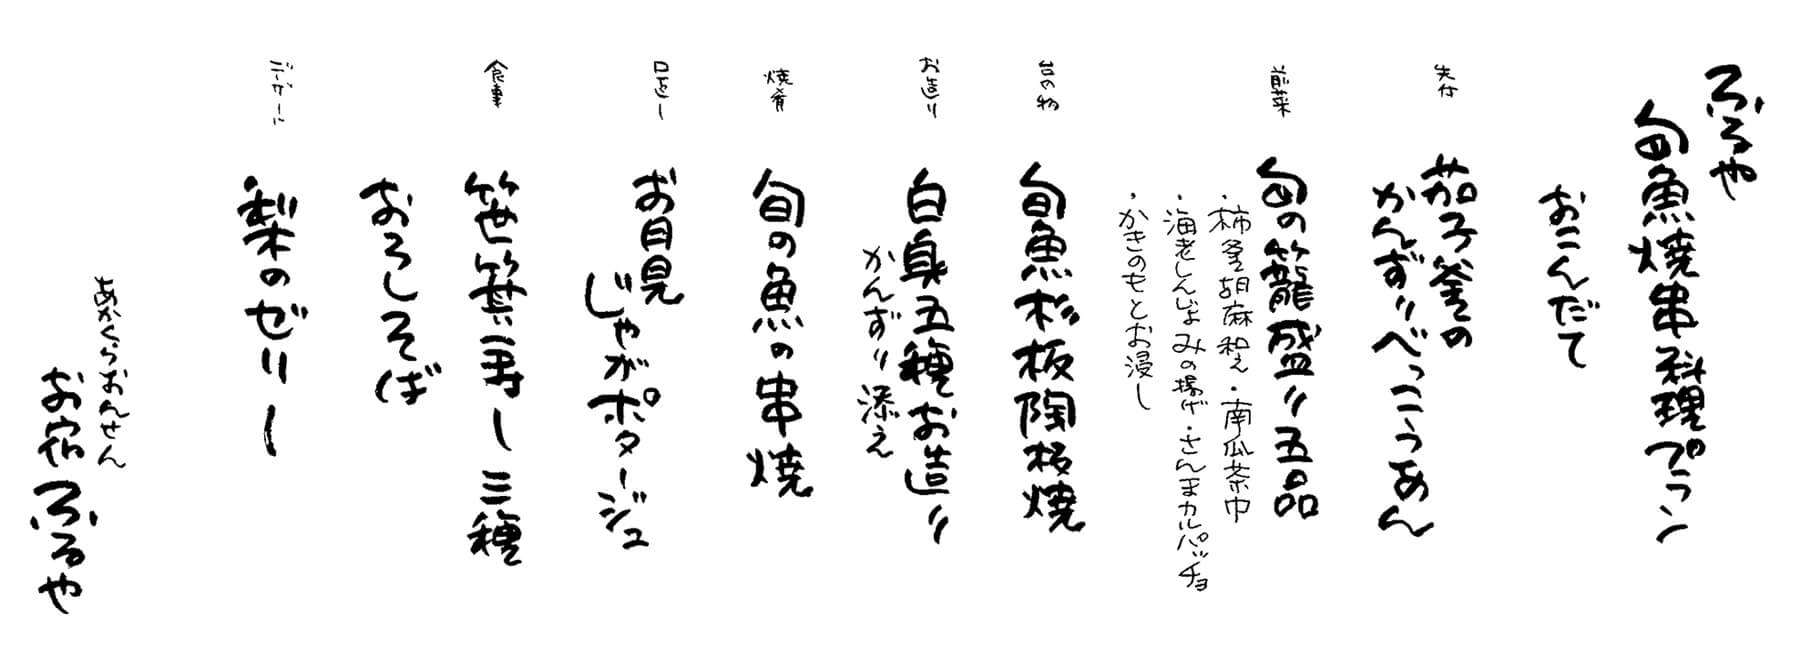 ふるや
旬魚焼串料理プラン
おこんだて
先付
茄子釜の
かんずりべっこうあん
前菜
旬の籠盛り五品
・柿釜胡麻和え・南瓜茶巾
・海老しんじょみの揚げ・さんまカルパッチョ
・かきのもとお浸し
台の物
旬魚杉板陶板焼
お造り
白身五種お造り
かんずり添え
焼肴
旬の魚の串焼
口直し
お月見
じゃがポタージュ
食事
笹箕寿し三種
おろしそば
デザート
梨のゼリー
あかくらおんせん
お宿ふるや